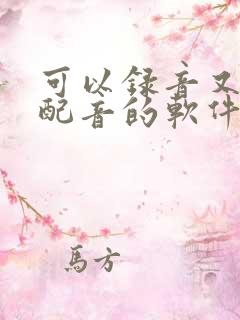 可以录音又
配音的软件
馬方